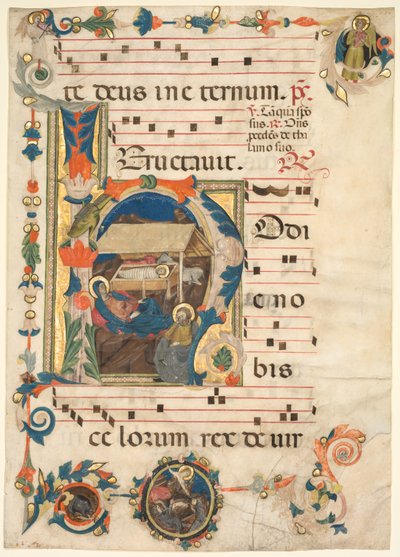 te deus in e ternum. ps.
V. Tāquā spō
sus. R. Dñs
pcedēs de tha
lamo suo.
Eructauit. R
H Odi
e no
bis
ce lorum rex de uir